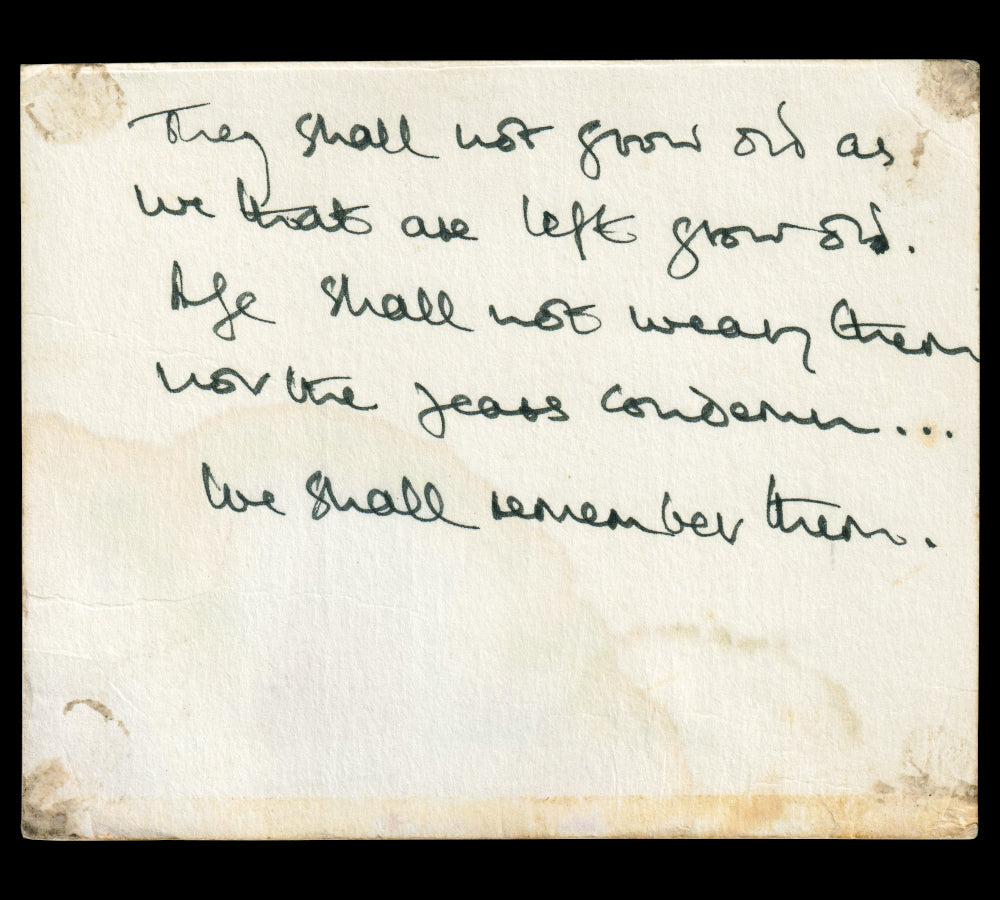 They shall not grow old as
we that are left grow old.
Age shall not weary them
nor the years condemn...
We shall remember them.